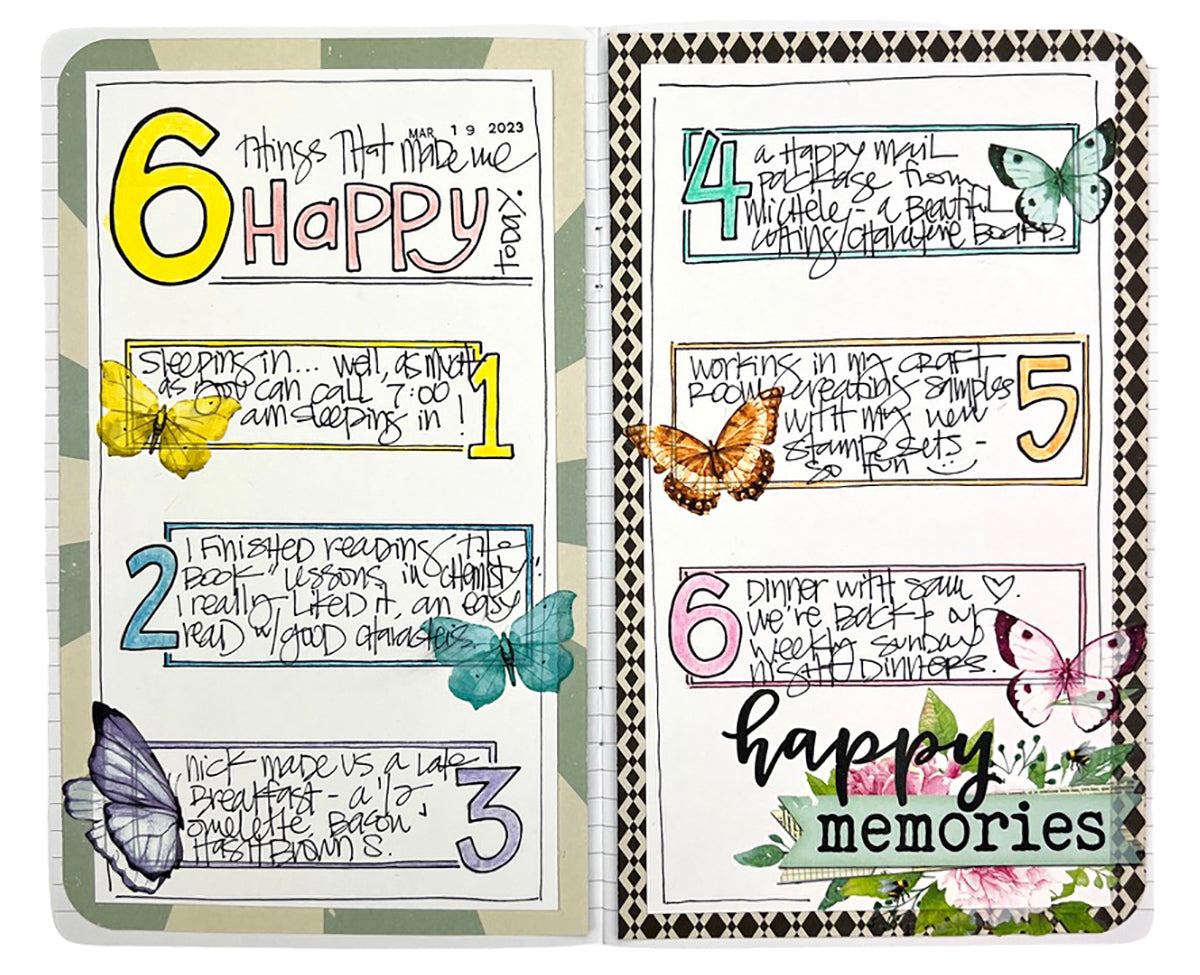 MAR 19 2023
6 things that made me
Happy today.
1
Sleeping in... well, as much
as you can call 7:00
am sleeping in!
2
I Finished reading the
Book "Lessons in Chemistry".
I really liked it, an easy
read w/good characters.
3
Nick made us a late
Breakfast - a 1/2
omelette, Bacon
Hash Browns.
4
a Happy mail
package from
Michele - a Beautiful
cutting/charcuterie Board.
5
working in my craft
room creating samples
with my new
stamp sets -
so fun
6
Dinner with Sam ♡.
we're Back
weekly Sunday
night Dinners.
happy
memories